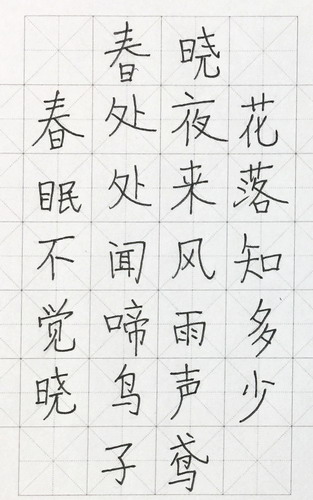 春晓
春眠不觉晓
处处闻啼鸟
夜来风雨声
花落知多少
子鸢